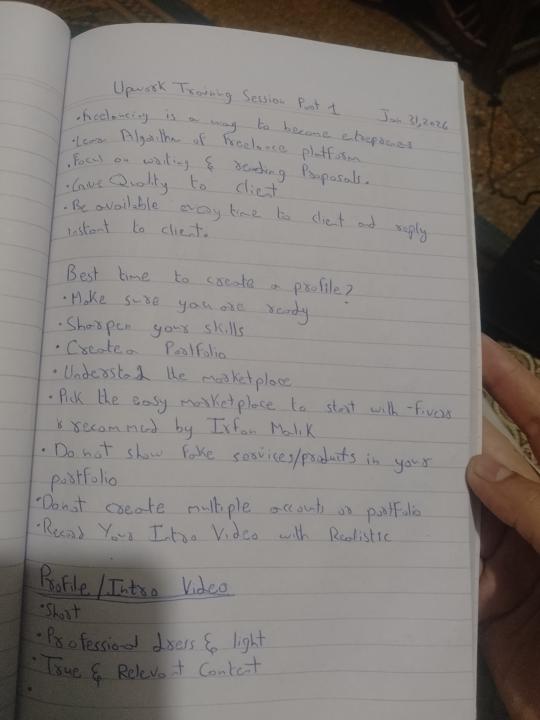 Upwork Training Session Part 1 Jan 31, 2026
• Freelancing is a way to become etrepreners
• Learn Algorithm of freelance platform
• Focus on writing & reading Proposals.
• Give Quality to client
• Be available every time to client and reply
instant to client.
Best time to create a profile?
• Make sure you are ready
• Sharpen your skills
• Create a Portfolio
• Understand the marketplace
• Pick the easy marketplace to start with - Fiverr
is recommed by Irfan Malik
• Do not show fake services/products in your
portfolio
• Do not create multiple accounts or portfolio
• Record Your Intro Video with Realistic
Profile / Intro Video
• Short
• Professional dress & light
• True & Relevant Content
•